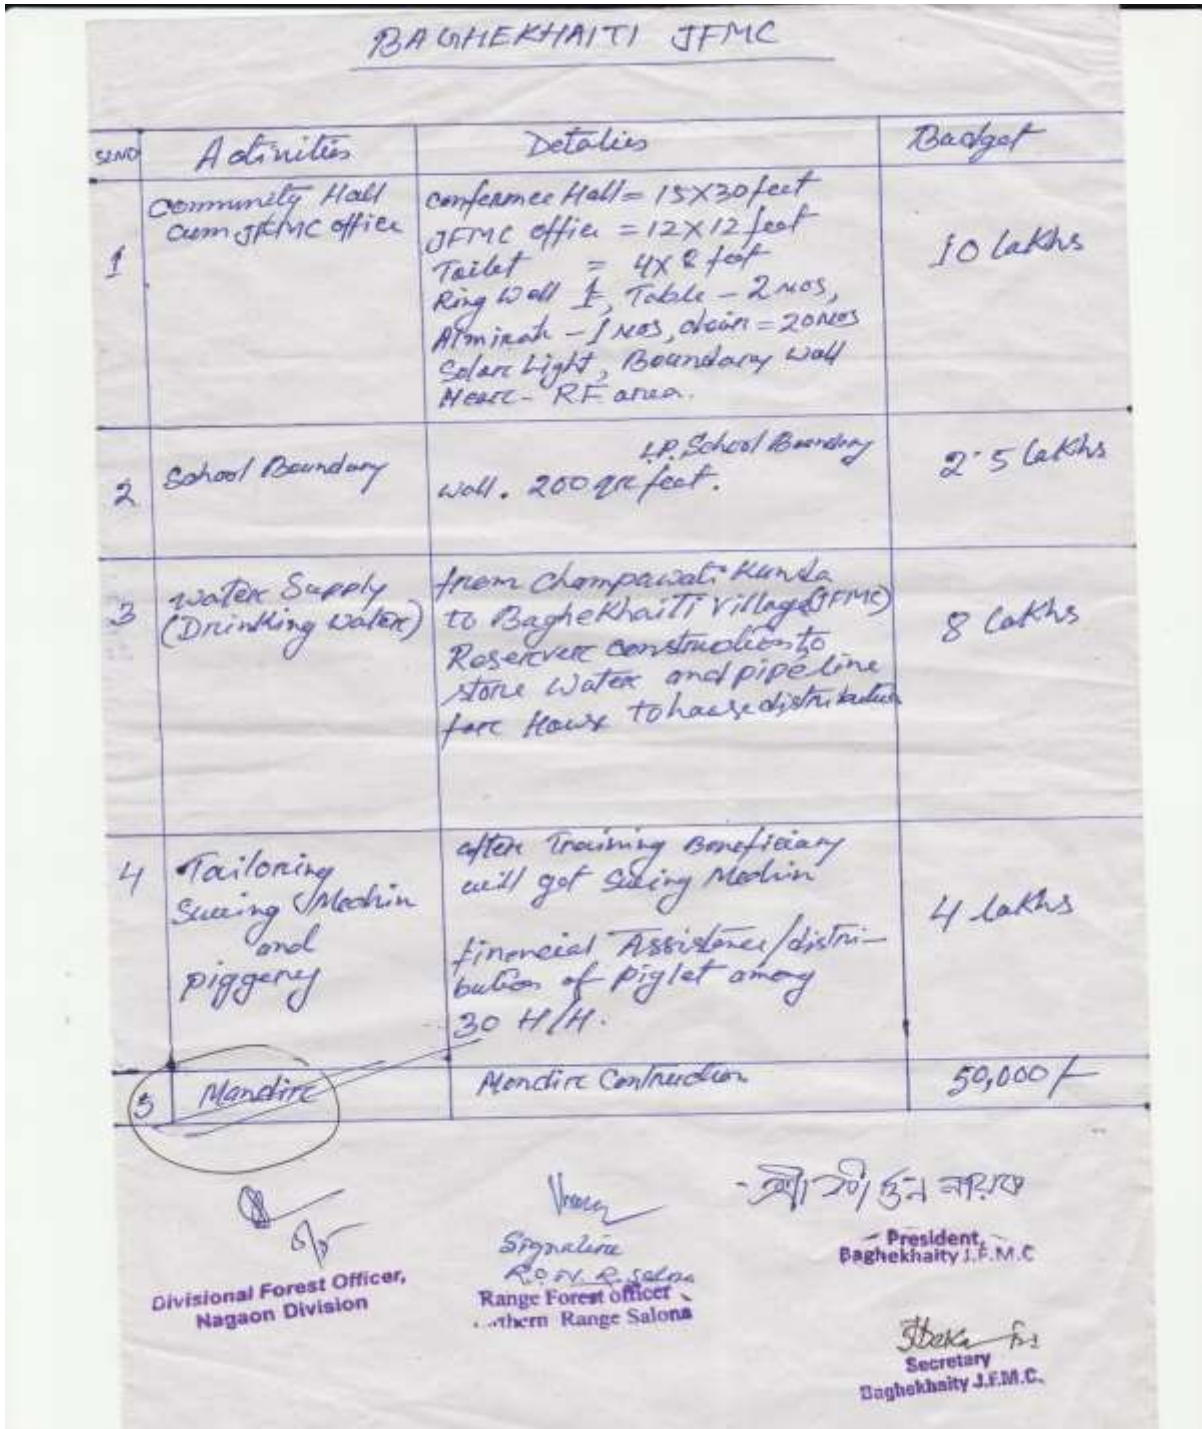 BAGHEKHAITI JFMC
SLNO Activities Detalies Budget
1
Community Hall
cum JFMC office
Conference Hall = 15X30 feet
JFMC office = 12X12 feet
Toilet = 4X8 feet
Ring Wall 1, Table - 2 nos,
Almirah - 1 nos, chair = 20 nos
Solare Light, Boundary wall
Neare - R.F. area.
10 Lakhs
2
School Boundary
L.P. School Boundary
wall. 200 feet.
2.5 Lakhs
3
Watere Supply
(Drinking Watere)
from Champawati Kunda
to Baghekhaiti Village (JFMC)
Reserver construction to
store Water and pipeline
fore House to house distribution
8 Lakhs
4
Tailoring
Suwing Mechin
and
piggery
after Training Beneficiary
will get Suwing Mechin
financial Assistance/distri-
bution of Piglet among
30 H/H.
4 Lakhs
5 Mandire Mandire Contruction 50,000/-
Divisional Forest Officer,
Nagaon Division
Signature
Range Forest officer
Range Salona
President,
Baghekhaity J.F.M.C
Secretary
Baghekhaity J.F.M.C.